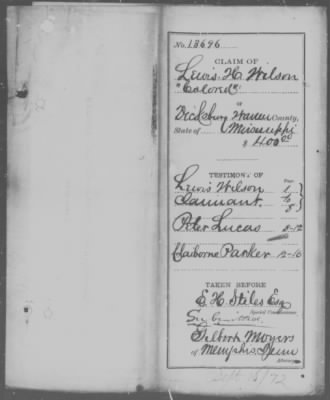 No. 13696
CLAIM OF
Lewis H. Wilson
"Colored"
OF
Vicksburg Warren County,
State of Mississippi
$ 400.00
TESTIMONY OF
Page
Lewis Wilson 1
Claimant 6
8
Peter Lucas 8-12
Claiborne Parker 12-16
TAKEN BEFORE
E. H. Stiles Esq
Special Commissioner.
Submitted.
Gilbert Moyers
of Memphis, Tenn
Attorney